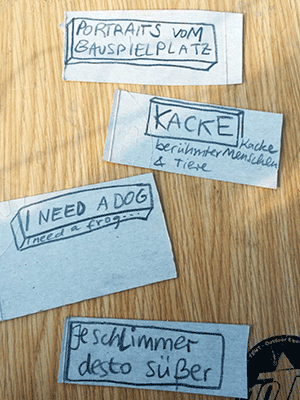 PORTRAITS VOM
BAUSPIELPLATZ
KACKE
Kacke
berühmter Menschen
& Tiere
I NEED A DOG
I need a frog...
Je schlimmer
desto süßer